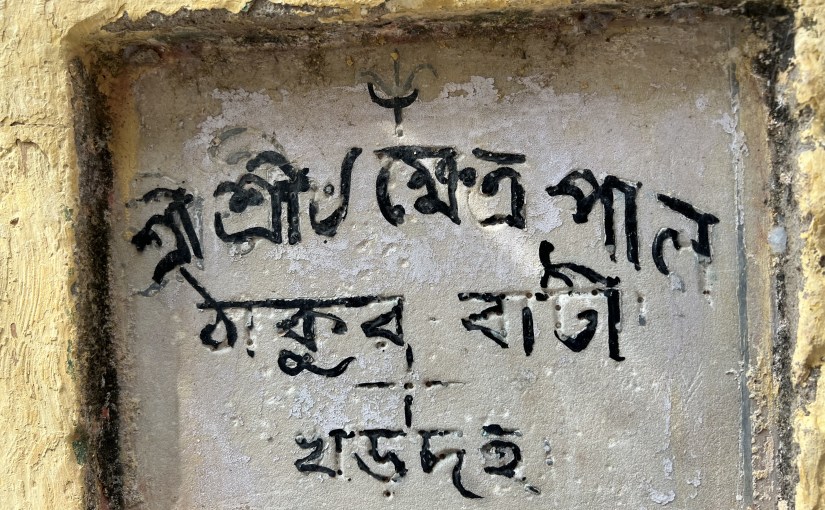 শ্রী শ্রী৺ ক্ষেত্র পাল
ঠাকুর বাটী
খড়দহ